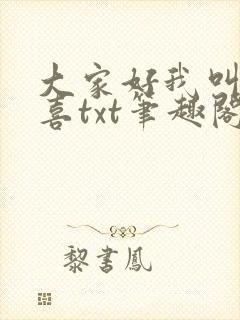 大家好我叫
喜txt笔趣阁
黎書鳳